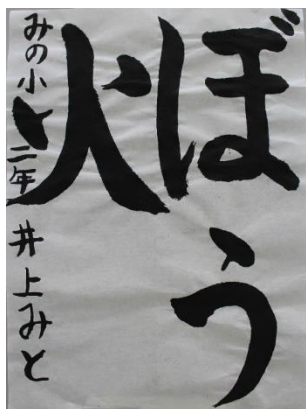 ぼう
火
みの小 二年 井上みと